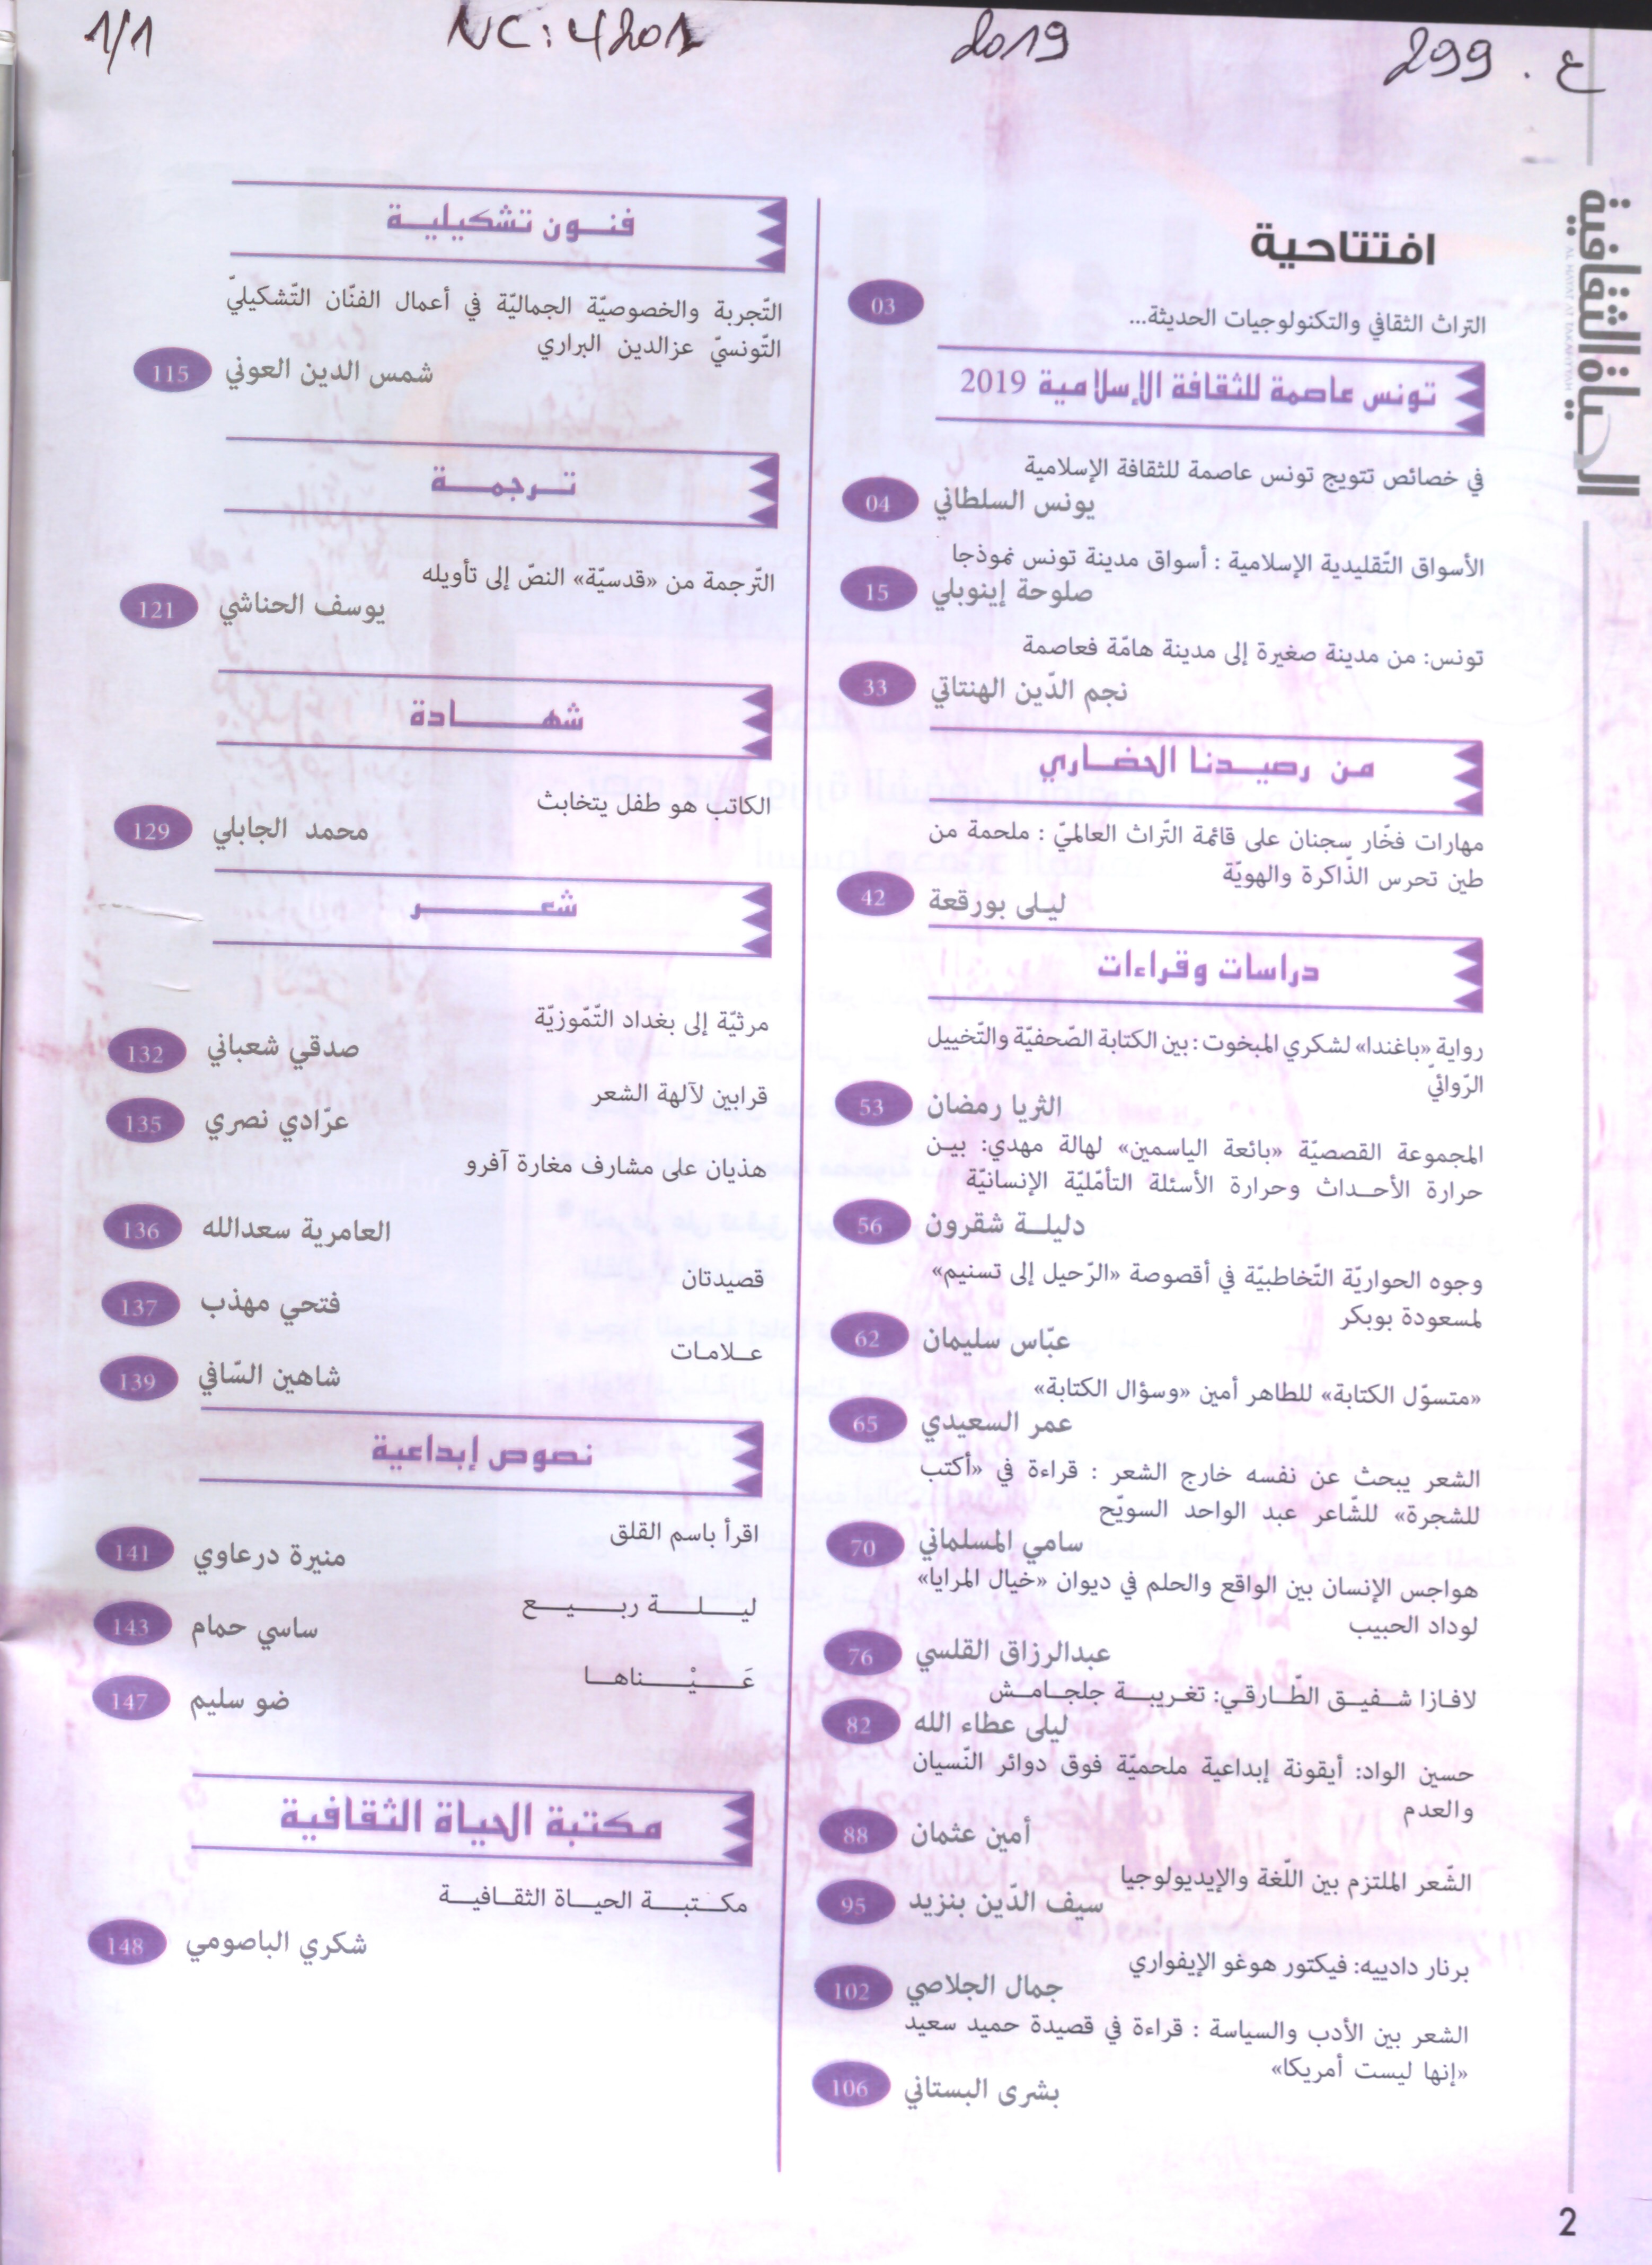 ع. 299
2019
NC: 4201
1/1
الحياة الثقافية
AL HAYAT AT TAKAFIYAH
افتتاحية
التراث الثقافي والتكنولوجيات الحديثة...
03
تونس عاصمة للثقافة الإسلامية 2019
في خصائص تتويج تونس عاصمة للثقافة الإسلامية
يونس السلطاني 04
الأسواق التّقليدية الإسلامية : أسواق مدينة تونس نموذجا
صلوحة إينوبلي 15
تونس: من مدينة صغيرة إلى مدينة هامّة فعاصمة
نجم الدّين الهنتاتي 33
من رصيدنا الحضاري
مهارات فخّار سجنان على قائمة التّراث العالميّ : ملحمة من
طين تحرس الذّاكرة والهويّة
ليلى بورقعة 42
دراسات وقراءات
رواية «باغندا» لشكري المبخوت: بين الكتابة الصّحفيّة والتّخييل
الرّوائيّ
الثريا رمضان 53
المجموعة القصصيّة «بائعة الياسمين» لهالة مهدي: بيـن
حرارة الأحـداث وحرارة الأسئلة التأمّليّة الإنسانيّة
دليلـة شقرون 56
وجوه الحواريّة التّخاطبيّة في أقصوصة «الرّحيل إلى تسنيم»
لمسعودة بوبكر
عبّاس سليمان 62
«متسوّل الكتابة» للطاهر أمين «وسؤال الكتابة»
عمر السعيدي 65
الشعر يبحث عن نفسه خارج الشعر : قراءة في «أكتب
للشجرة» للشّاعر عبد الواحد السويّح
سامي المسلماني 70
هواجس الإنسان بين الواقع والحلم في ديوان «خيال المرايا»
لوداد الحبيب
عبدالرزاق القلسي 76
لافـازا شـفيـق الطّـارقـي: تغـريبـة جلجـامـش
ليلى عطاء الله 82
حسين الواد: أيقونة إبداعية ملحميّة فوق دوائر النّسيان
والعدم
أمين عثمان 88
الشّعر الملتزم بين اللّغة والإيديولوجيا
سيف الدّين بنزيد 95
برنار دادييه: فيكتور هوغو الإيفواري
جمال الجلاصي 102
الشعر بين الأدب والسياسة : قراءة في قصيدة حميد سعيد
«إنها ليست أمريكا»
بشرى البستاني 106
فنـون تشكيليـة
التّجربة والخصوصيّة الجماليّة في أعمال الفنّان التّشكيليّ
التّونسيّ عزالدين البراري
شمس الدين العوني 115
تـرجمـة
التّرجمة من «قدسيّة» النصّ إلى تأويله
يوسف الحناشي 121
شهـــادة
الكاتب هو طفل يتخابث
محمد الجابلي 129
شعـــر
مرثيّة إلى بغداد التّمّوزيّة
صدقي شعباني 132
قرابين لآلهة الشعر
عرّادي نصري 135
هذيان على مشارف مغارة آفرو
العامرية سعدالله 136
قصيدتان
فتحي مهذب 137
عـلامـات
شاهين السّافي 139
نصوص إبداعية
اقرأ باسم القلق
منيرة درعاوي 141
ليــلــة ربــيــع
ساسي حمام 143
عَــيْــناهـا
ضو سليم 147
مكتبة الحياة الثقافية
مكـتبـة الحيـاة الثقـافيـة
شكري الباصومي 148
2